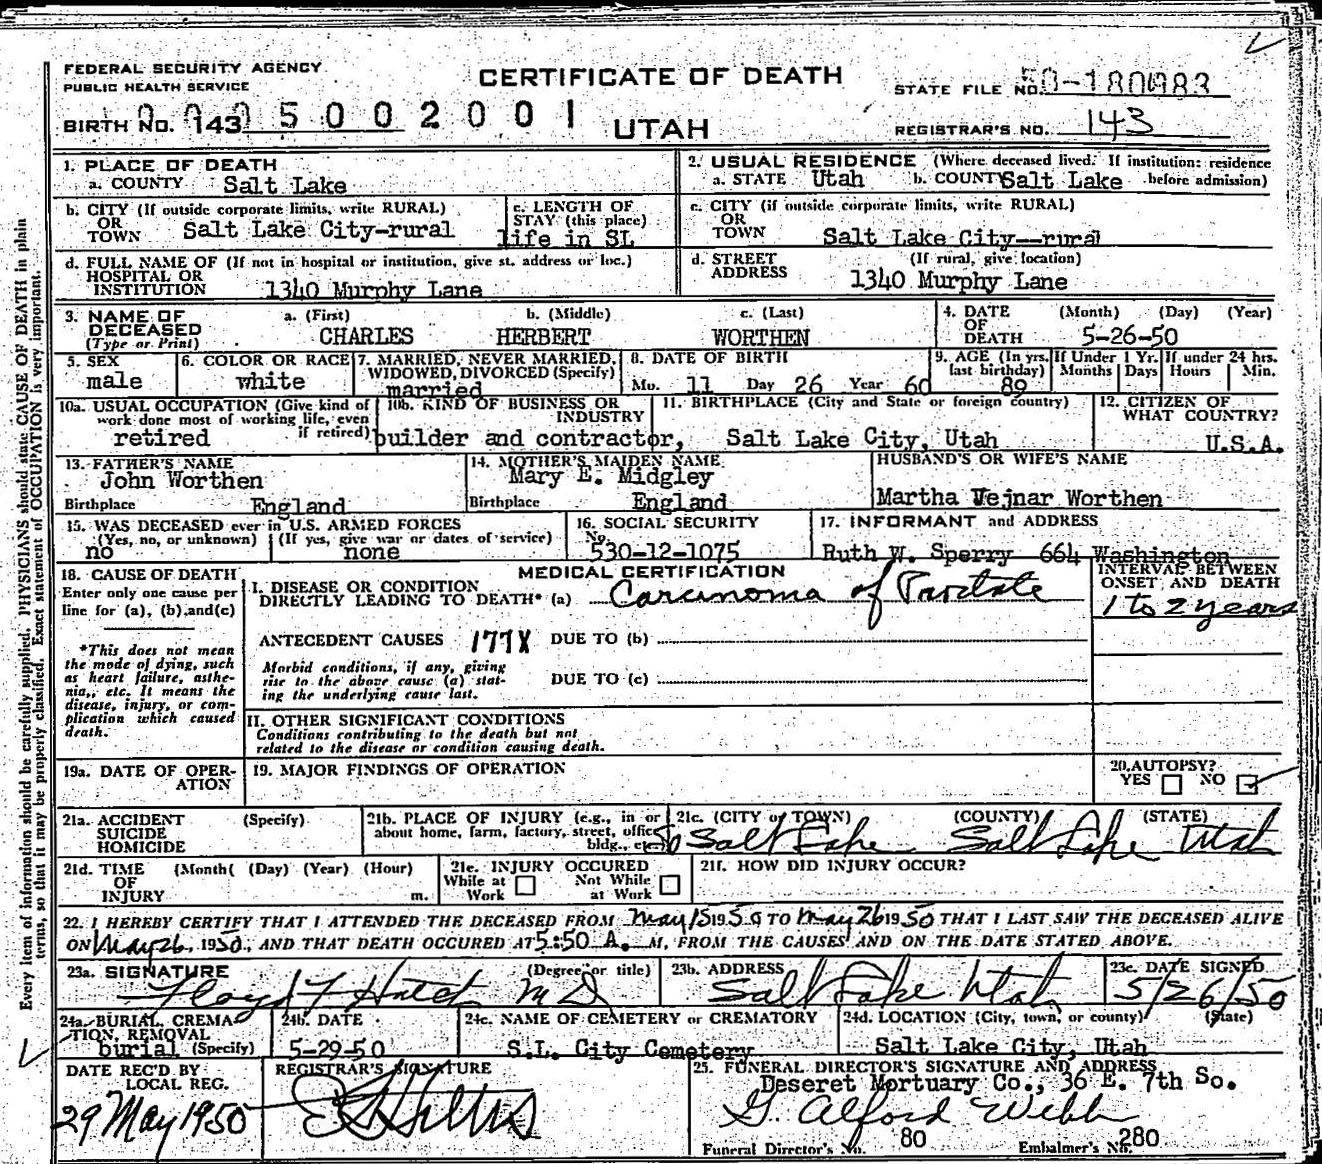 FEDERAL SECURITY AGENCY
PUBLIC HEALTH SERVICE
CERTIFICATE OF DEATH
STATE FILE NO.
BIRTH NO. 143 5 0 0 2 0 0 1
UTAH
REGISTRAR'S NO. 143
1. PLACE OF DEATH
a. COUNTY Salt Lake
2. USUAL RESIDENCE (Where deceased lived. If institution: residence before admission)
a. STATE Utah b. COUNTY Salt Lake
b. CITY (If outside corporate limits, write RURAL)
OR TOWN Salt Lake City-rural
c. LENGTH OF STAY (this place)
life in SL
c. CITY (if outside corporate limits, write RURAL)
OR TOWN Salt Lake City--rural
d. FULL NAME OF (If not in hospital or institution, give st. address or loc.)
HOSPITAL OR
INSTITUTION 1340 Murphy Lane
d. STREET ADDRESS (If rural, give location)
1340 Murphy Lane
3. NAME OF DECEASED
(Type or Print)
a. (First) b. (Middle) c. (Last)
CHARLES HERBERT WORTHEN
4. DATE OF DEATH (Month) (Day) (Year)
5-26-50
5. SEX
male
6. COLOR OR RACE
white
7. MARRIED, NEVER MARRIED, WIDOWED, DIVORCED (Specify)
married
8. DATE OF BIRTH
Mo. 11 Day 26 Year 60
9. AGE (In yrs. last birthday)
89
If Under 1 Yr.
Months Days
If under 24 hrs.
Hours Min.
10a. USUAL OCCUPATION (Give kind of work done most of working life, even if retired)
retired
10b. KIND OF BUSINESS OR INDUSTRY
builder and contractor,
11. BIRTHPLACE (City and State or foreign country)
Salt Lake City, Utah
12. CITIZEN OF WHAT COUNTRY?
U.S.A.
13. FATHER'S NAME
John Worthen
Birthplace England
14. MOTHER'S MAIDEN NAME
Mary E. Midgley
Birthplace England
HUSBAND'S OR WIFE'S NAME
Martha Vejnar Worthen
15. WAS DECEASED ever in U.S. ARMED FORCES
(Yes, no, or unknown) (If yes, give war or dates of service)
no none
16. SOCIAL SECURITY No.
530-12-1075
17. INFORMANT and ADDRESS
Ruth W. Sperry 664 Washington
18. CAUSE OF DEATH
Enter only one cause per
line for (a), (b), and (c)
*This does not mean
the mode of dying, such
as heart failure, asthe-
nia,, etc. It means the
disease, injury, or com-
plication which caused
death.
MEDICAL CERTIFICATION
I. DISEASE OR CONDITION
DIRECTLY LEADING TO DEATH* (a) Carcinoma of Prostate
INTERVAL BETWEEN
ONSET AND DEATH
1 to 2 years
ANTECEDENT CAUSES 177X DUE TO (b)
Morbid conditions, if any, giving
rise to the above cause (a) stat-
ing the underlying cause last.
DUE TO (c)
II. OTHER SIGNIFICANT CONDITIONS
Conditions contributing to the death but not
related to the disease or condition causing death.
19a. DATE OF OPER-
ATION
19. MAJOR FINDINGS OF OPERATION
20. AUTOPSY?
YES NO
21a. ACCIDENT (Specify)
SUICIDE
HOMICIDE
21b. PLACE OF INJURY (e.g., in or
about home, farm, factory, street, office
bldg., etc.)
21c. (CITY or TOWN) (COUNTY) (STATE)
Salt Lake Salt Lake Utah
21d. TIME (Month( (Day) (Year) (Hour)
OF
INJURY m.
21e. INJURY OCCURED
While at Work Not While at Work
21f. HOW DID INJURY OCCUR?
22. I HEREBY CERTIFY THAT I ATTENDED THE DECEASED FROM May 15 1950 TO May 26 1950 THAT I LAST SAW THE DECEASED ALIVE
ON May 26, 1950, AND THAT DEATH OCCURED AT 5:50 A. M, FROM THE CAUSES AND ON THE DATE STATED ABOVE.
23a. SIGNATURE (Degree or title)
Floyd F Hatch M D
23b. ADDRESS
Salt Lake Utah
23c. DATE SIGNED
5/26/50
24a. BURIAL, CREMA-
TION, REMOVAL
burial (Specify)
24b. DATE
5-29-50
24c. NAME OF CEMETERY or CREMATORY
S.L. City Cemetery
24d. LOCATION (City, town, or county) (State)
Salt Lake City, Utah
DATE REC'D BY
LOCAL REG.
29 May 1950
REGISTRAR'S SIGNATURE
25. FUNERAL DIRECTOR'S SIGNATURE AND ADDRESS
Deseret Mortuary Co., 36 E. 7th So.
G. Alford Webb
Funeral Director's No. 80 Embalmer's No. 280
Every item of information should be carefully supplied. PHYSICIANS should state CAUSE OF DEATH in plain
terms, so that it may be properly classified. Exact statement of OCCUPATION is very important.